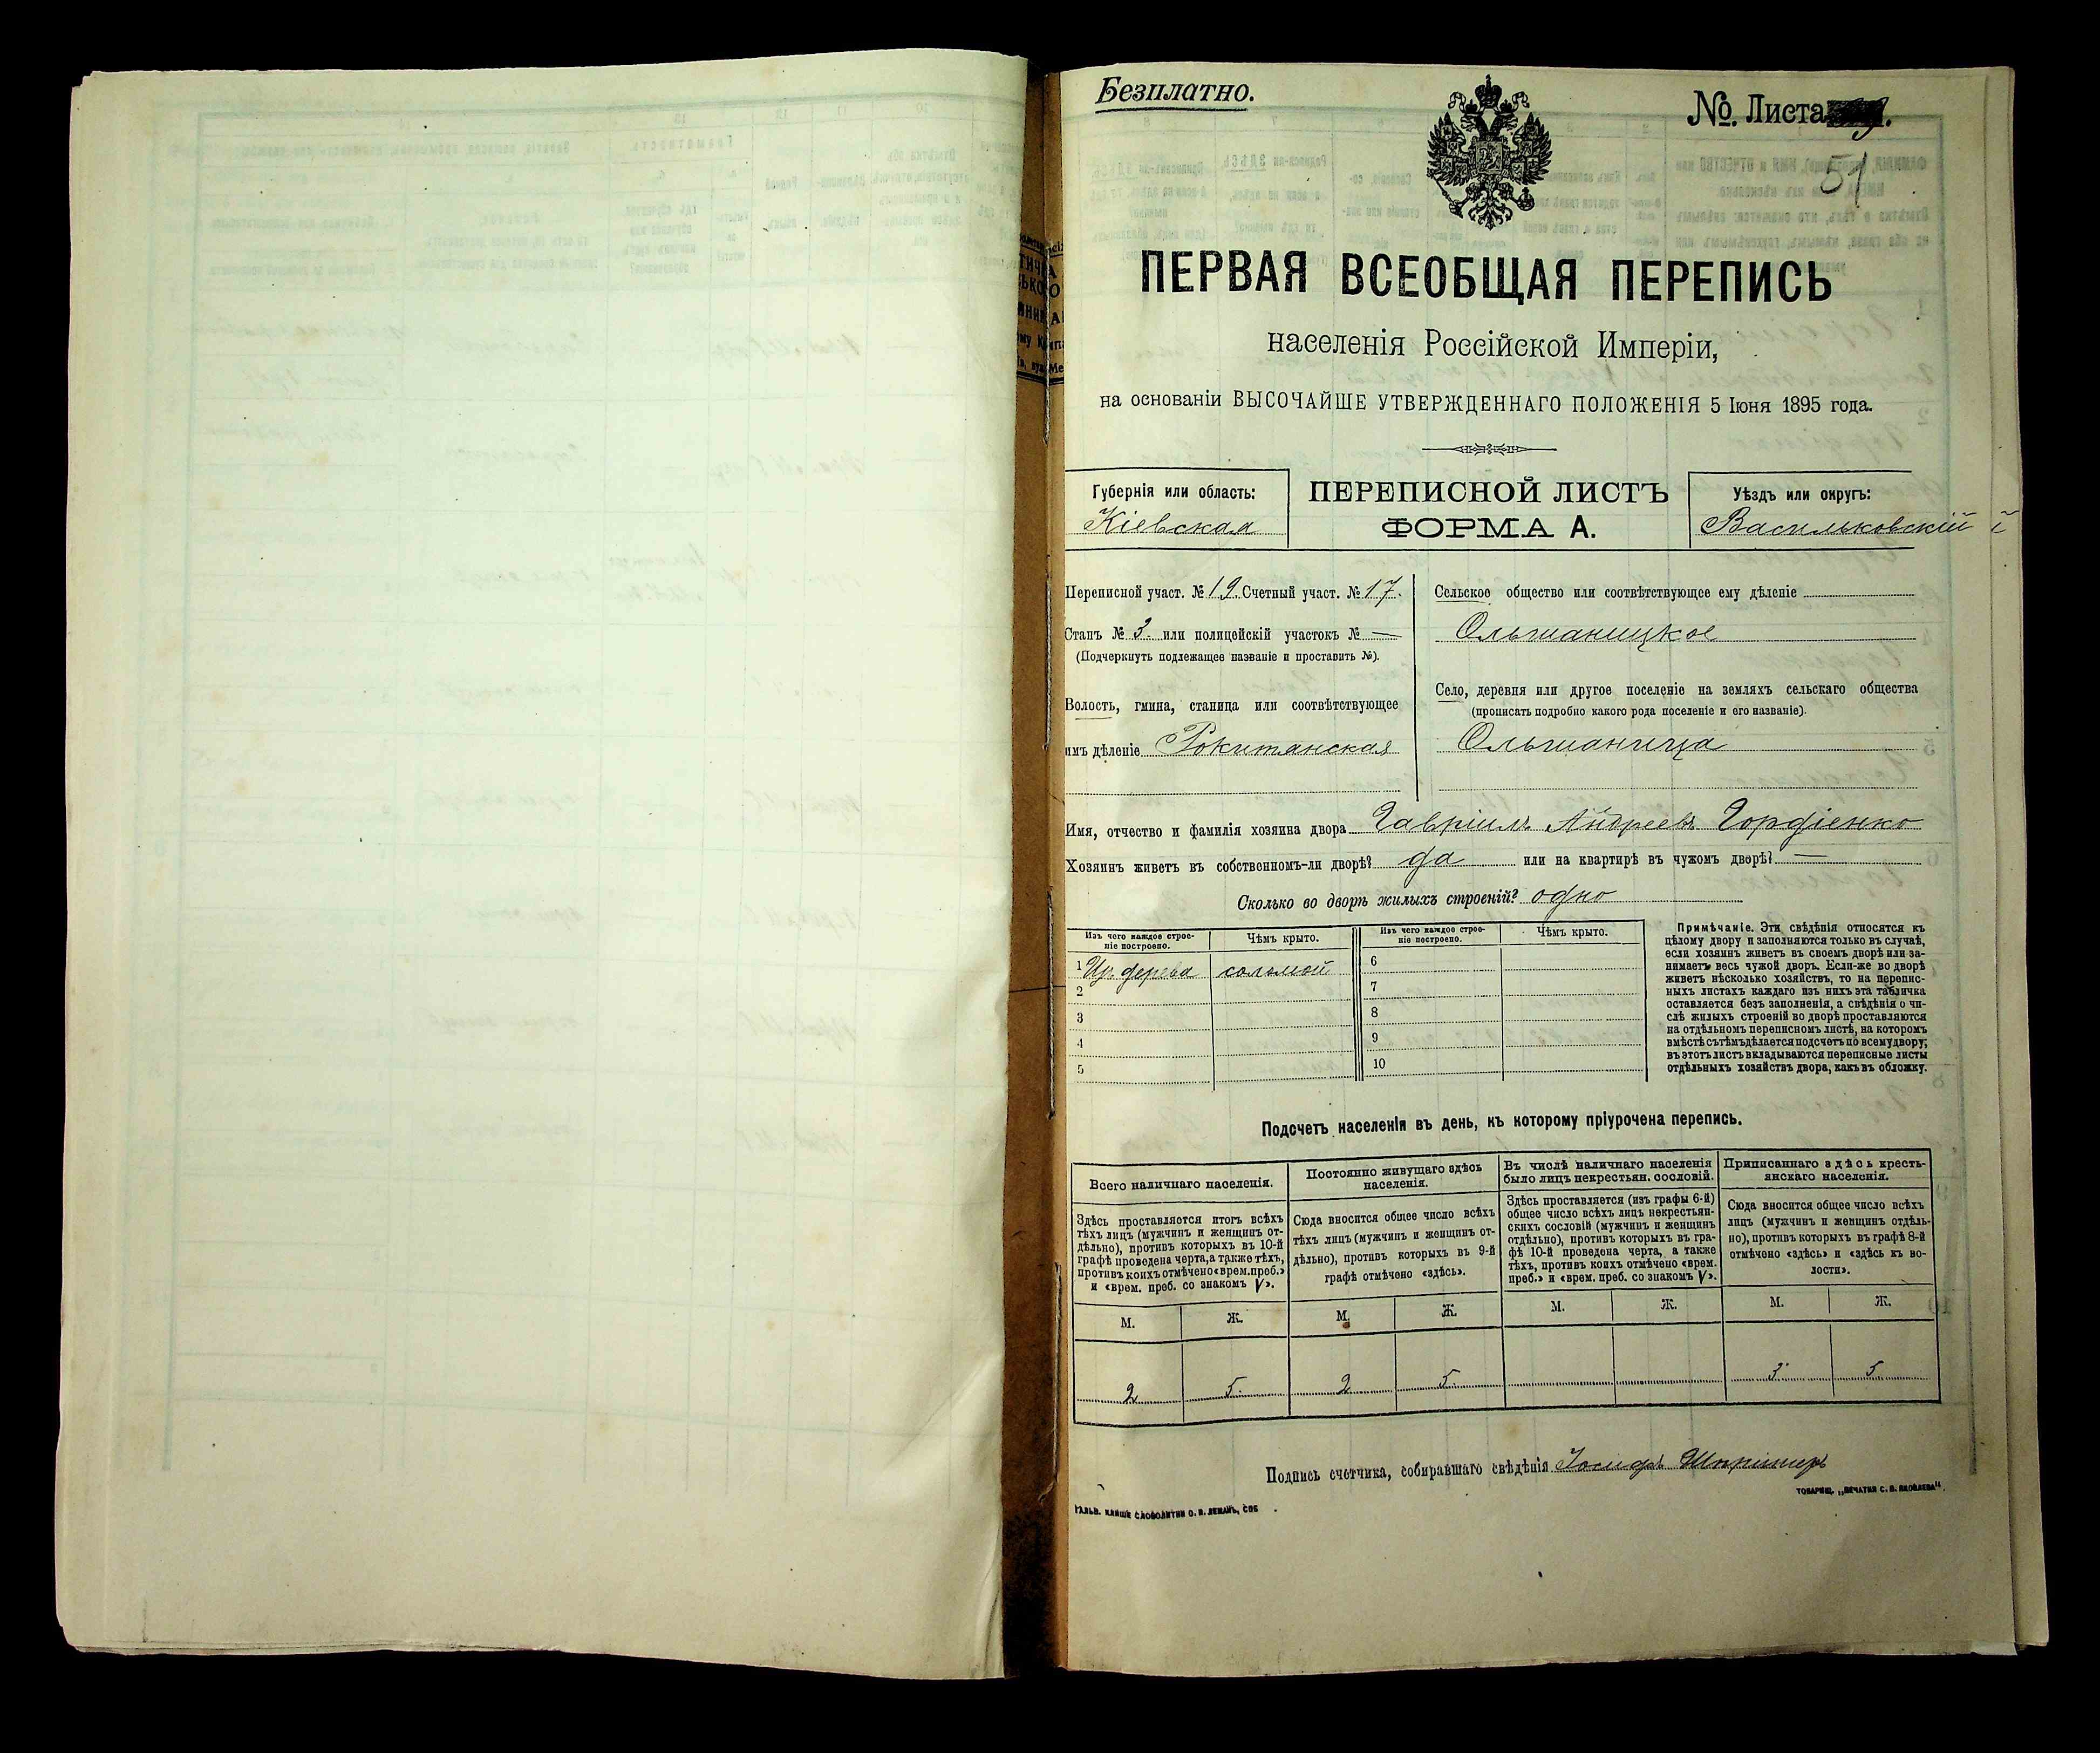 Безплатно.
№. Листа
51
ПЕРВАЯ ВСЕОБЩАЯ ПЕРЕПИСЬ
населенія Россійской Имперіи,
на основаніи ВЫСОЧАЙШЕ УТВЕРЖДЕННАГО ПОЛОЖЕНІЯ 5 Іюня 1895 года.
Губернія или область:
Кіевская
ПЕРЕПИСНОЙ ЛИСТЪ
ФОРМА А.
Уѣздъ или округъ:
Васильковскій
Переписной участ. № 19. Счетный участ. № 17.
Станъ № 3. или полицейскій участокъ № —
(Подчеркнуть подлежащее названіе и проставить №).
Волость, гмина, станица или соотвѣтствующее
имъ дѣленіе Рокитанская
Сельское общество или соотвѣтствующее ему дѣленіе
Ольшаницкое
Село, деревня или другое поселеніе на земляхъ сельскаго общества
(прописать подробно какого рода поселеніе и его названіе).
Ольшаница
Имя, отчество и фамилія хозяина двора Гавріилъ Андреевъ Гордіенко
Хозяинъ живетъ въ собственномъ-ли дворѣ? да или на квартирѣ въ чужомъ дворѣ? —
Сколько во дворѣ жилыхъ строеній? одно
Изъ чего каждое строе-
ніе построено.
Чѣмъ крыто.
Изъ чего каждое строе-
ніе построено.
Чѣмъ крыто.
1 Изъ дерева соломой 6
2 7
3 8
4 9
5 10
Примѣчаніе. Эти свѣдѣнія относятся къ
цѣлому двору и заполняются только въ случаѣ,
если хозяинъ живетъ въ своемъ дворѣ или за-
нимаетъ весь чужой дворъ. Если-же во дворѣ
живетъ нѣсколько хозяйствъ, то на перепис-
ныхъ листахъ каждаго изъ нихъ эта табличка
оставляется безъ заполненія, а свѣдѣнія о чи-
слѣ жилыхъ строеній во дворѣ проставляются
на отдѣльномъ переписномъ листѣ, на которомъ
вмѣстѣ съ тѣмъ дѣлается подсчетъ по всему двору;
въ этотъ листъ вкладываются переписные листы
отдѣльныхъ хозяйствъ двора, какъ въ обложку.
Подсчетъ населенія въ день, къ которому пріурочена перепись.
Всего наличнаго населенія.
Здѣсь проставляется итогъ всѣхъ
тѣхъ лицъ (мужчинъ и женщинъ от-
дѣльно), противъ которыхъ въ 10-й
графѣ проведена черта, а также тѣхъ,
противъ коихъ отмѣчено «врем. преб.»
и «врем. преб. со знакомъ V».
Постоянно живущаго здѣсь
населенія.
Сюда вносится общее число всѣхъ
тѣхъ лицъ (мужчинъ и женщинъ от-
дѣльно), противъ которыхъ въ 9-й
графѣ отмѣчено «здѣсь».
Въ числѣ наличнаго населенія
было лицъ некрестьян. сословій.
Здѣсь проставляется (изъ графы 6-й)
общее число всѣхъ лицъ некрестьян-
скихъ сословій (мужчинъ и женщинъ
отдѣльно), противъ которыхъ въ гра-
фѣ 10-й проведена черта, а также
тѣхъ, противъ коихъ отмѣчено «врем.
преб.» и «врем. преб. со знакомъ V».
Приписаннаго здѣсь кресть-
янскаго населенія.
Сюда вносится общее число всѣхъ
лицъ (мужчинъ и женщинъ отдѣль-
но), противъ которыхъ въ графѣ 8-й
отмѣчено «здѣсь» и «здѣсь къ во-
лости».
М. Ж. М. Ж. М. Ж. М. Ж.
2 5. 2 5. 3 5
Подпись счетчика, собиравшаго свѣдѣнія Іосифъ
ГАЛЬВ. КЛИШЕ СЛОВОЛИТНИ О. И. ЛЕМАНЪ, СПБ
ТОВАРИЩ. „ПЕЧАТНЯ С. П. ЯКОВЛЕВА“.